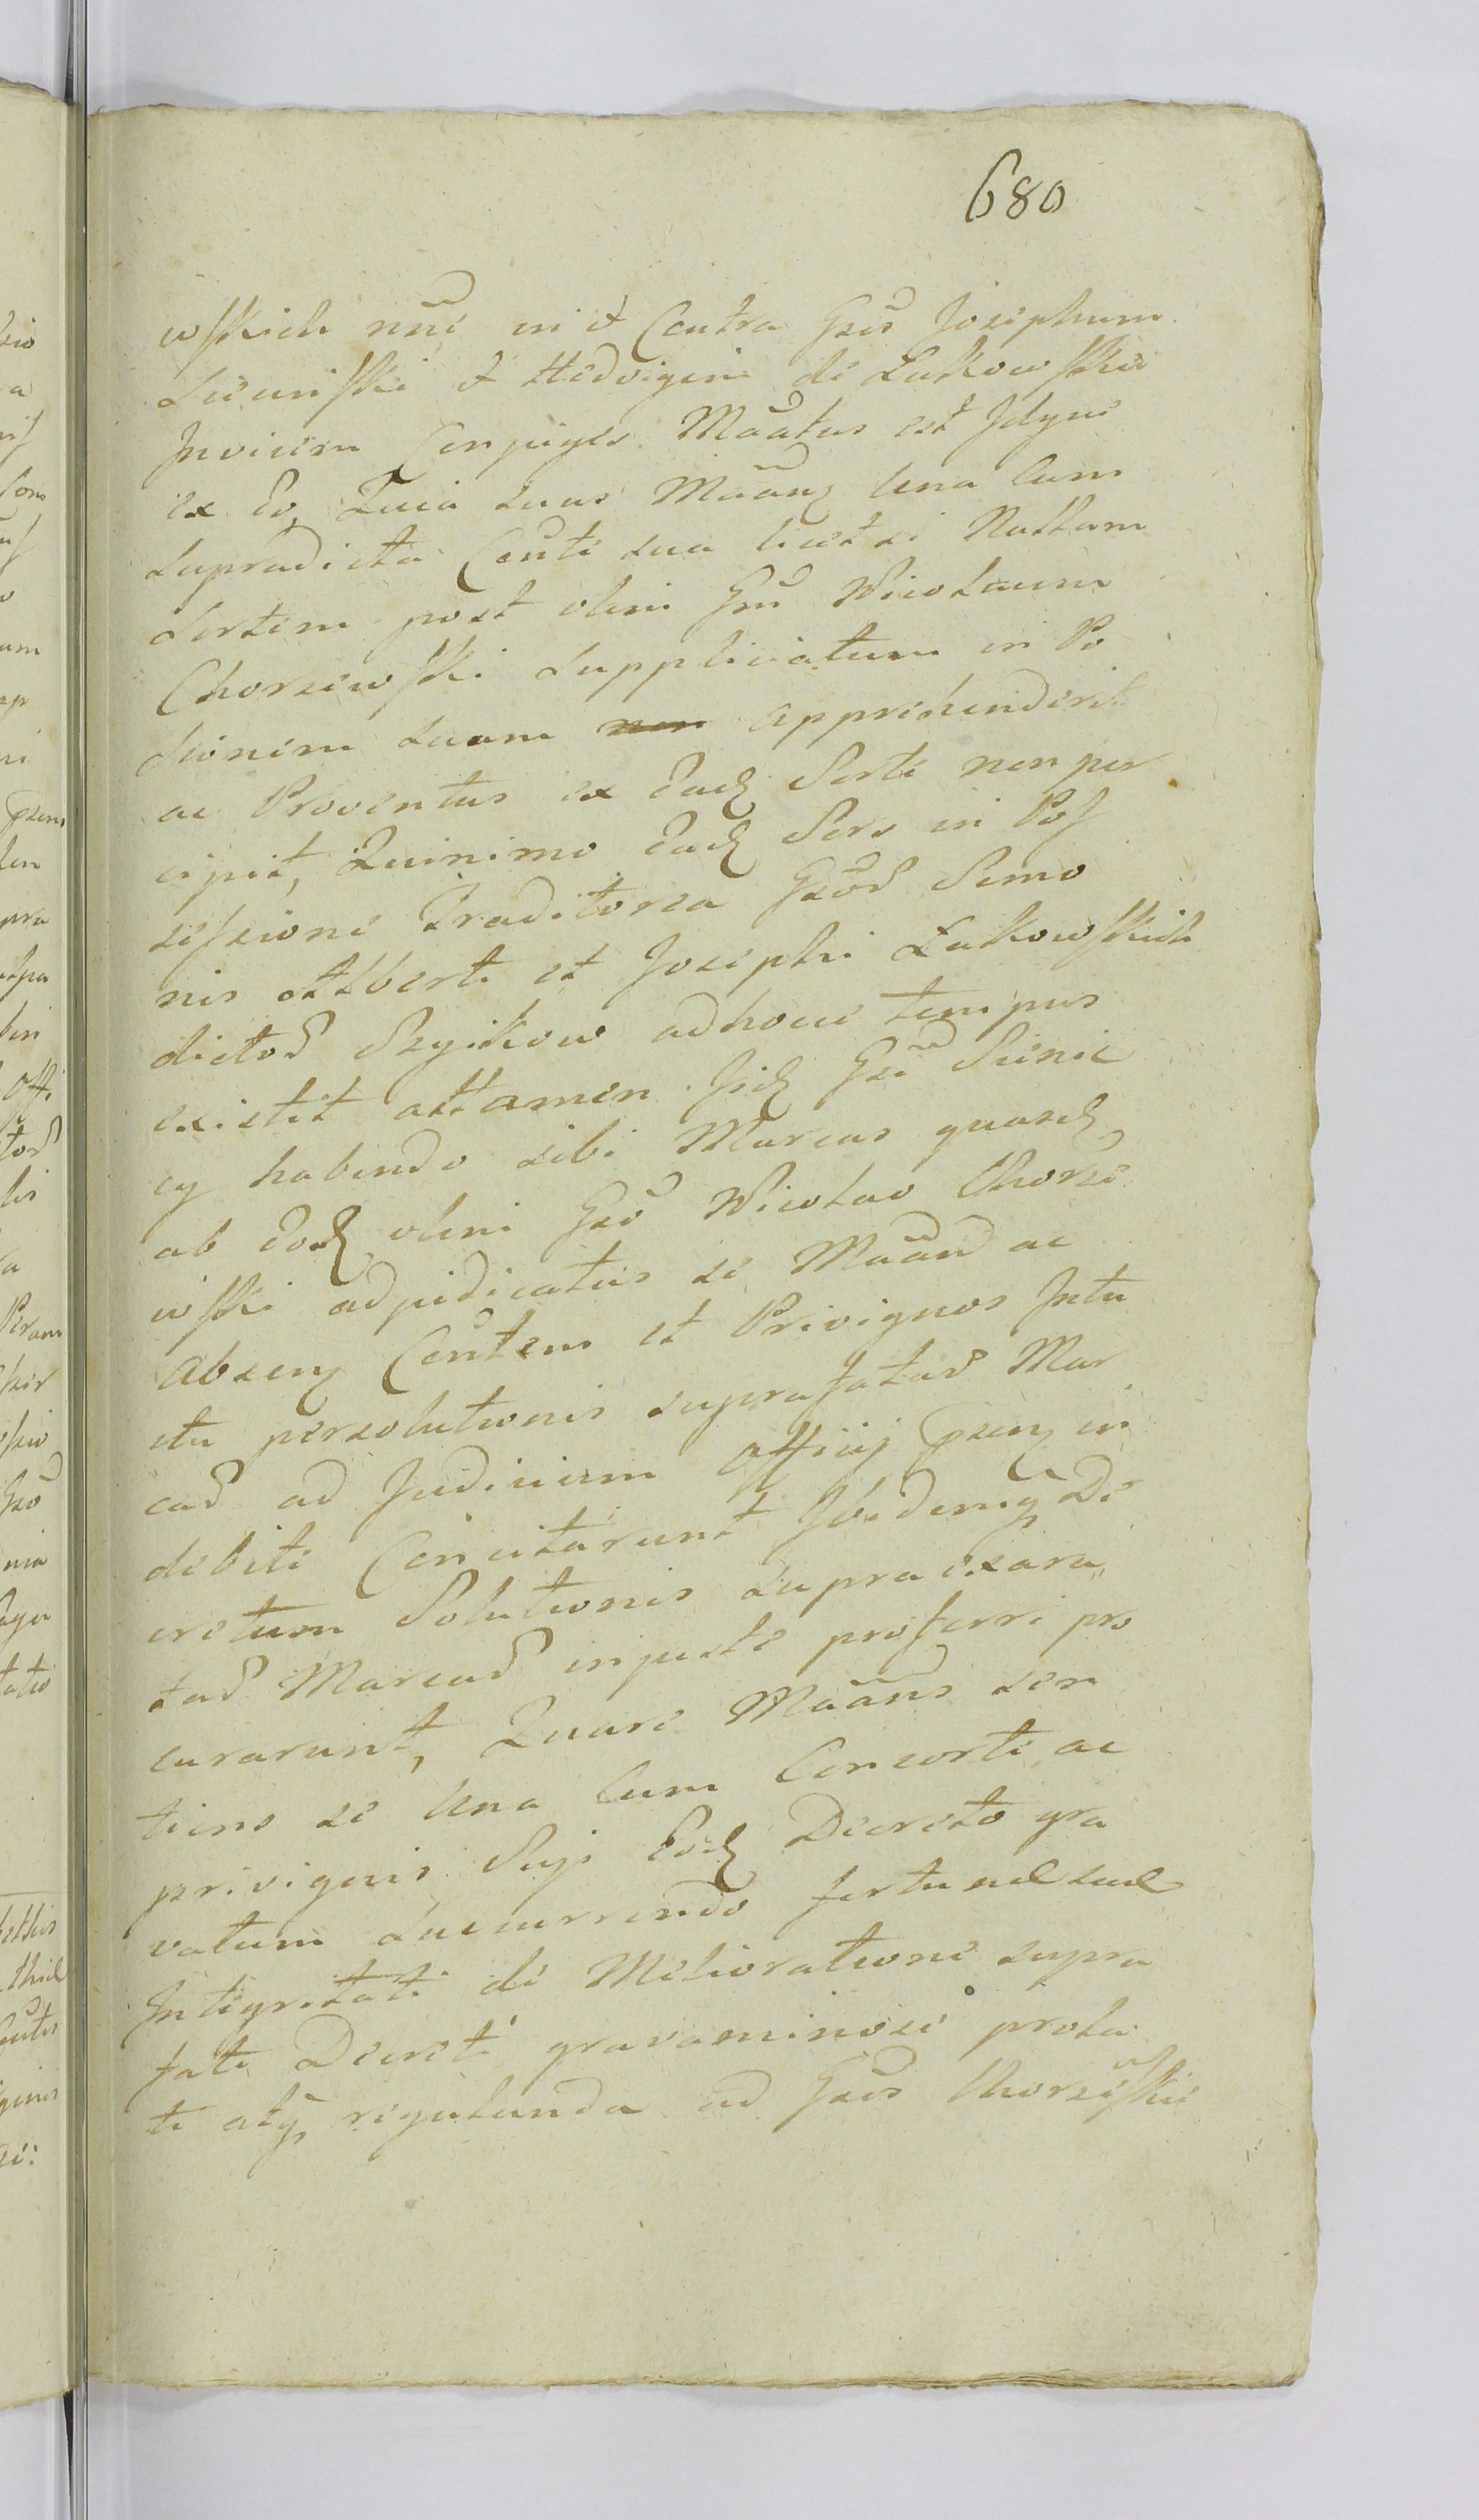 680
wskich nne in et Contra Gsos Josephum
Siemiski et Hedvigim de Lukowskie
Invicem Conjuges Maatus est Idque
ex Eo, Quia suus Maanq Una Cum
supradicta Conti sua licet si Nullam
Sortem post olim Gsu Nicolaum
Chorzewski supplicatum in Po
ssionem suam non apprehenderit
ac Proventus ex Eadq Sorte non per
cipit, Quinimo Eadq Sors in Pos
sessione Traditoria Gsod Simo
nis Alberti et Josephi Lukowskich
dictod Szyikow adhoue tempus
existit attamen Iidq Gsi Sienic
cy habendo sibi Marcas quasdq
ab Eodq olim Gso Nicolao Chorze
wski adjudicatas se Maand ac
absenq Contem et Privignos Intu
itu persolutionis suprafatad Mar
cad ad Judicium Officij psenq in
debite Concitarunt Ibidemq De
cretum Solutionis supra exara
tad Marcad injuste proferri pro
curarunt, Quare Maans sen
tiens se Una Cum Consorte ac
privignis Suji Eodq Decreto gra
vatum succurrendo fortunæ suæ
Integritati de Melioratione supra
fati Decreti gravaminose prola
ti atq regulanda ad Gsos Chorzeskie